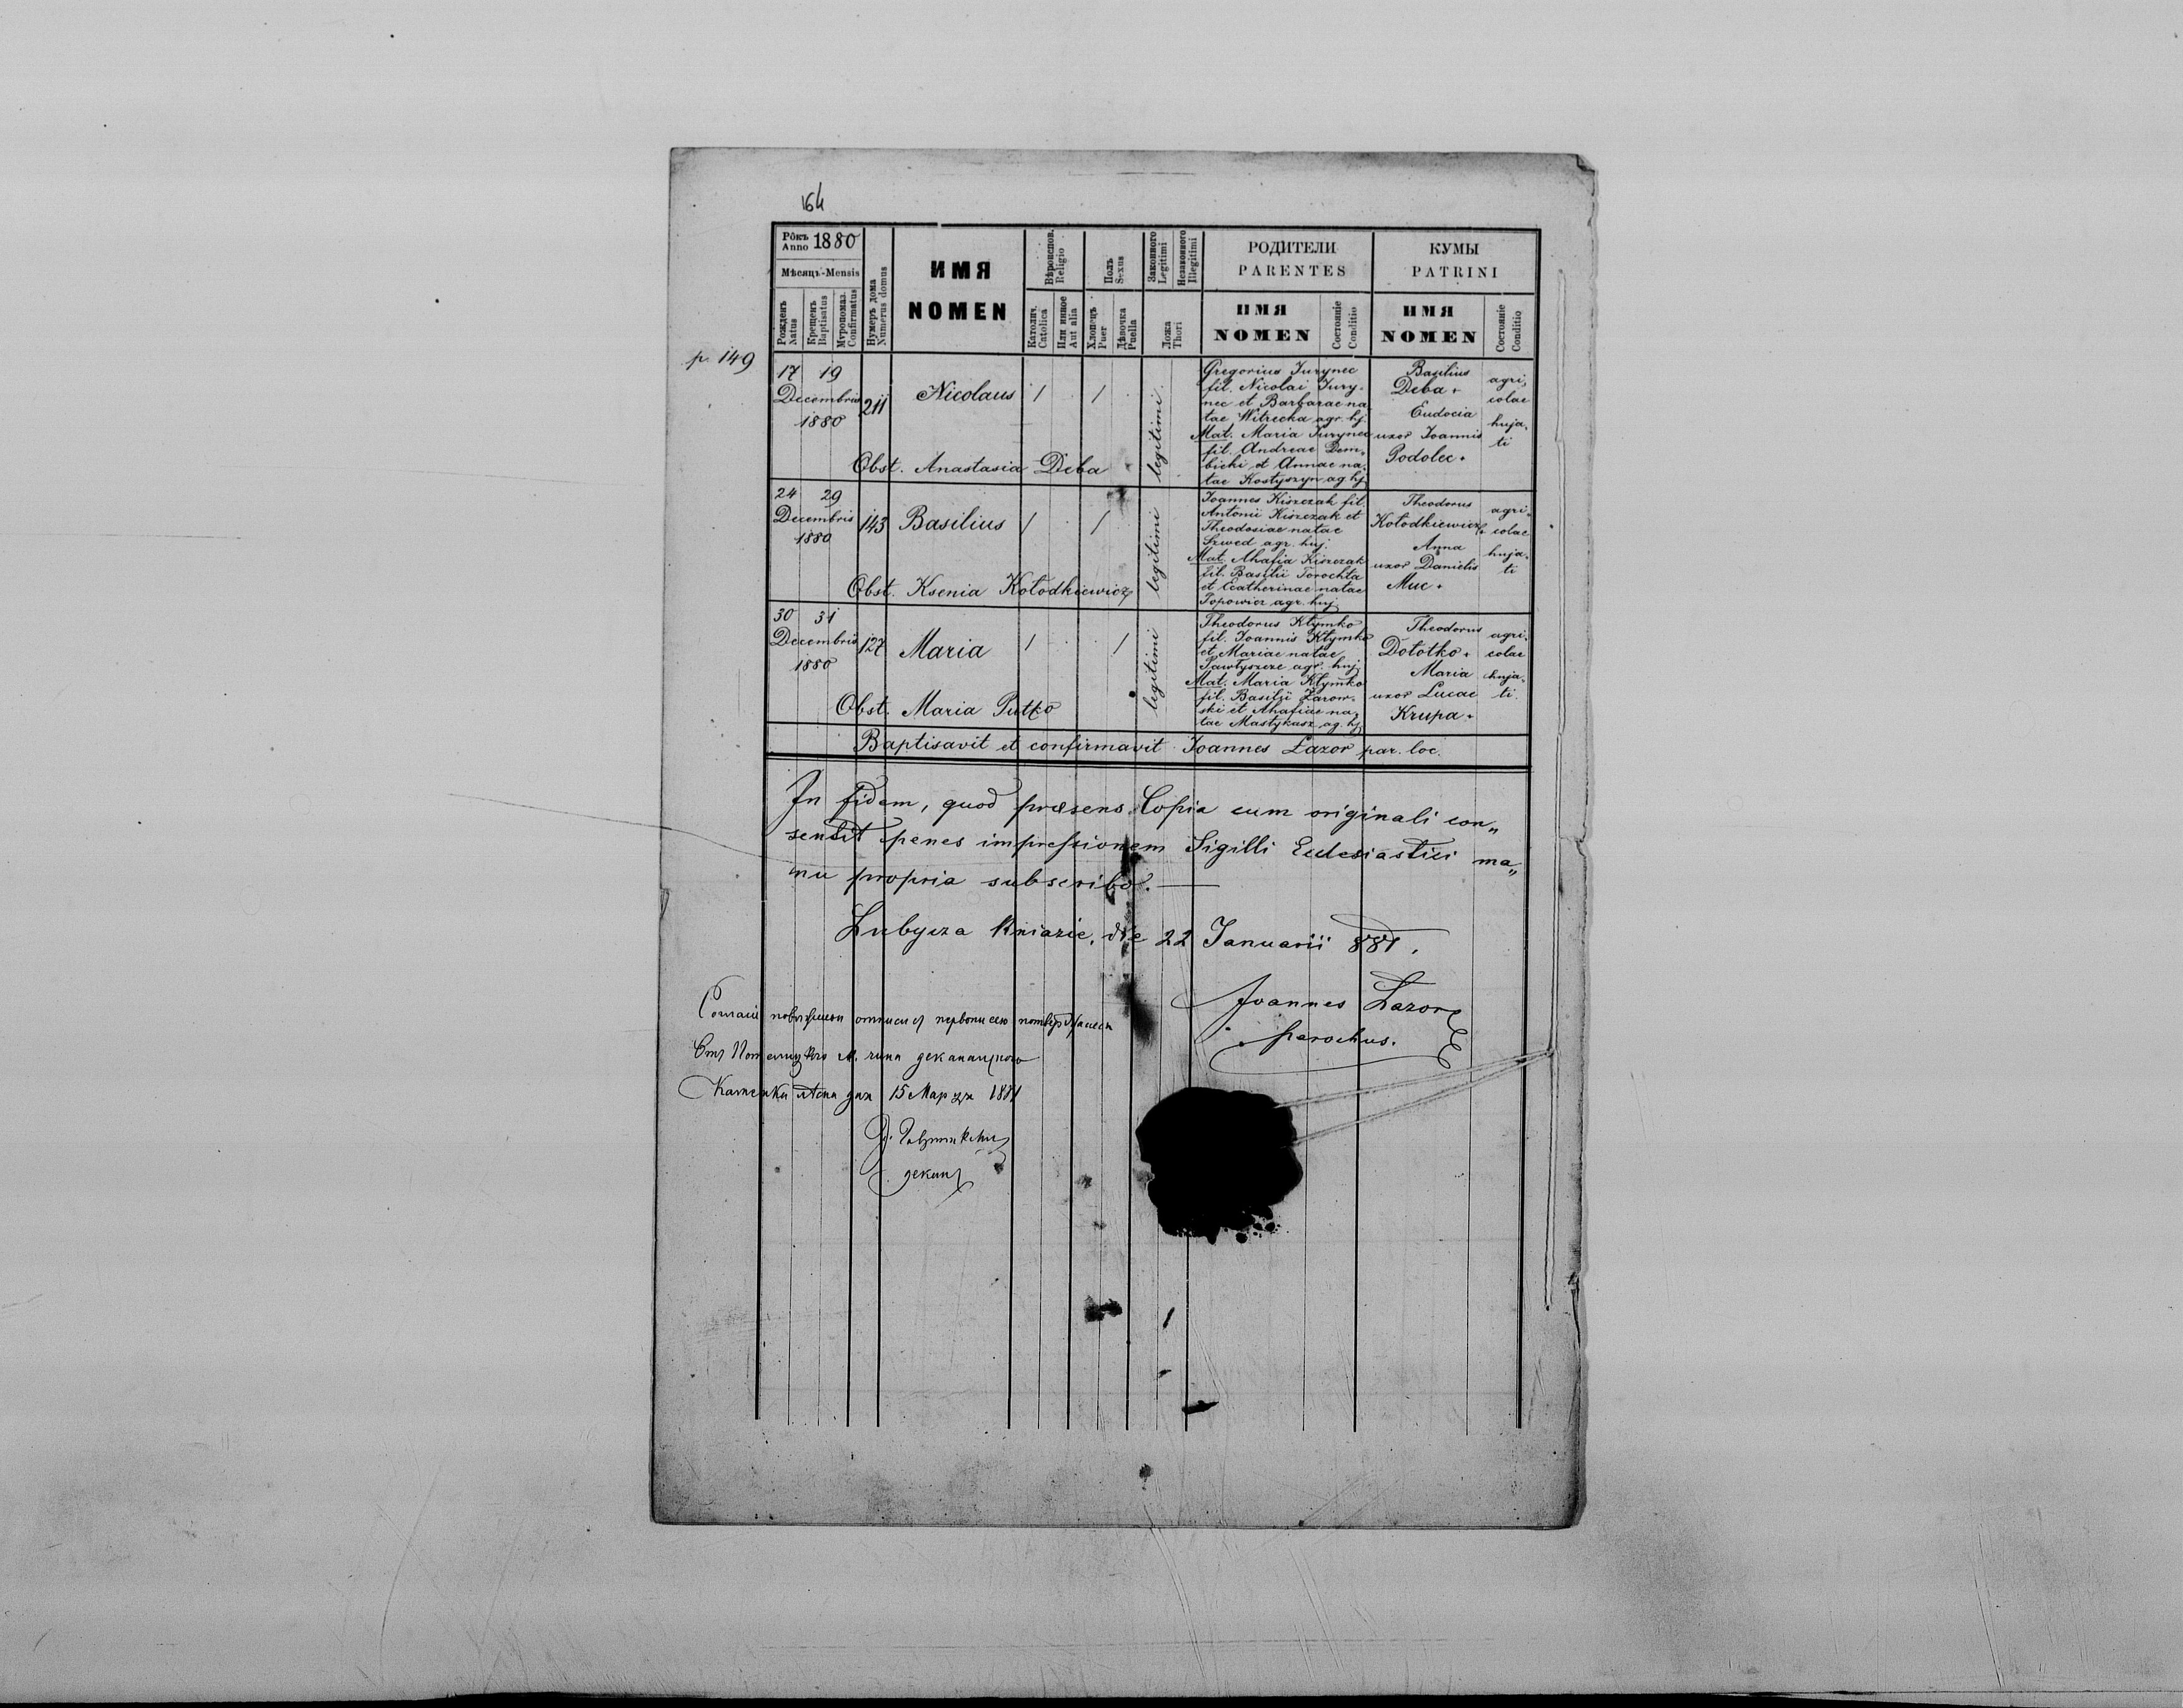 164
p. 149
Рôкъ Anno 1880
Мѣсяцъ-Mensis
Рожденъ Natus
Крещенъ Baptisatus
Мѵропомаз. Confirmatus
Нумеръ дома Numerus domus
ИМЯ
NOMEN
Вѣроиспов. Religio
Католич. Catolica
Или инное Aut alia
Полъ Sexus
Хлопецъ Puer
Дѣвочка Puella
Законного Legitimi
Незаконного Illegitimi
Ложа Thori
РОДИТЕЛИ
PARENTES
ИМЯ
NOMEN
Состояніе Conditio
КУМЫ
PATRINI
ИМЯ
NOMEN
Состояніе Conditio
17 19
Decembris
1880
211
Nicolaus / /
legitimi
Obst. Anastasia Deba
Gregorius Jurynec
fil. Nicolai Jury-
nec et Barbarae na
tae Witrecha agr. hj.
Mat. Maria Jurynec
fil. Andreae Dem-
bicki et Annae na-
tae Kostyszyn ag hj
Basilius
Deba +
Eudocia
uxor Joannis
Podolec +
agri,
colae
huja-
ti
24 29
Decembris
1880
143
Basilius / /
legitimi
Obst. Ksenia Kołodkiewicz
Joannes Kiszczak fil.
Antonii Kiszczak et
Theodosiae natae
Szwed agr. huj.
Mat. Ahafia Kiszczak
fil. Basilii Torochta
et Catherinae natae
Popowicz agr. huj.
Theodorus
Kołodkiewicz +
Anna
uxor Danielis
Muc +
agri-
colae
huja-
ti
30 31
Decembris
1880
127
Maria / /
legitimi
Obst. Maria Putko
Theodorus Kłymko
fil. Joannis Kłymko
et Mariae natae
Pawłyszcze agr. huj
Mat. Maria Kłymko
fil. Basilii Żarow-
ski et Ahafiae na-
tae Mastykasz ag. hj
Theodorus
Dołotko +
Maria
uxor Lucae
Krupa +
agri-
colae
huja-
ti.
Baptisavit et confirmavit Joannes Lazor par. loc.
In fidem, quod præsens Copia cum originali con„
sentit penes impressionem Sigilli Ecclesiastici ma„
nu propria subscribo. —
Lubycza Kniazie, die 22 Januarii 881.
Joannes Lazor
parochus.
15 Марта 1881
деканъ